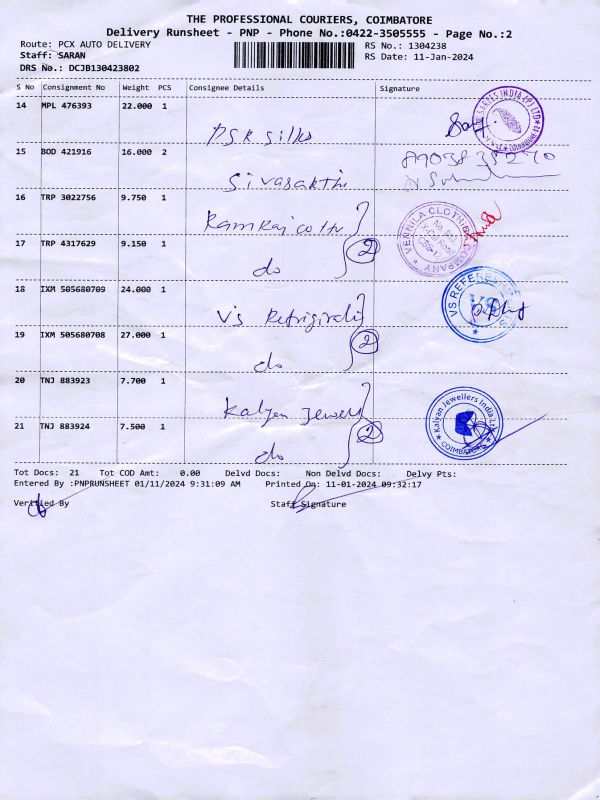 THE PROFESSIONAL COURIERS, COIMBATORE
Delivery Runsheet - PNP - Phone No.:0422-3505555 - Page No.:2
Route: PCX AUTO DELIVERY RS No.: 1304238
Staff: SARAN RS Date: 11-Jan-2024
DRS No.: DCJB130423802
S No Consignment No Weight PCS Consignee Details Signature
14 MPL 476393 22.000 1
PSR Silks
15 BOD 421916 16.000 2
Sivasakthi
16 TRP 3022756 9.750 1
Ramraj
17 TRP 4317629 9.150 1
do 2
18 IXM 505680709 24.000 1
VS
19 IXM 505680708 27.000 1
do 2
20 TNJ 883923 7.700 1
Kalyan Jewell
21 TNJ 883924 7.500 1
do 2
VENNILA CLOTHING COMPANY
Kalyan Jewellers India Ltd
COIMBATORE
Tot Docs: 21 Tot COD Amt: 0.00 Delvd Docs: Non Delvd Docs: Delvy Pts:
Entered By :PNPRUNSHEET 01/11/2024 9:31:09 AM Printed On: 11-01-2024 09:32:17
Verified By Staff Signature